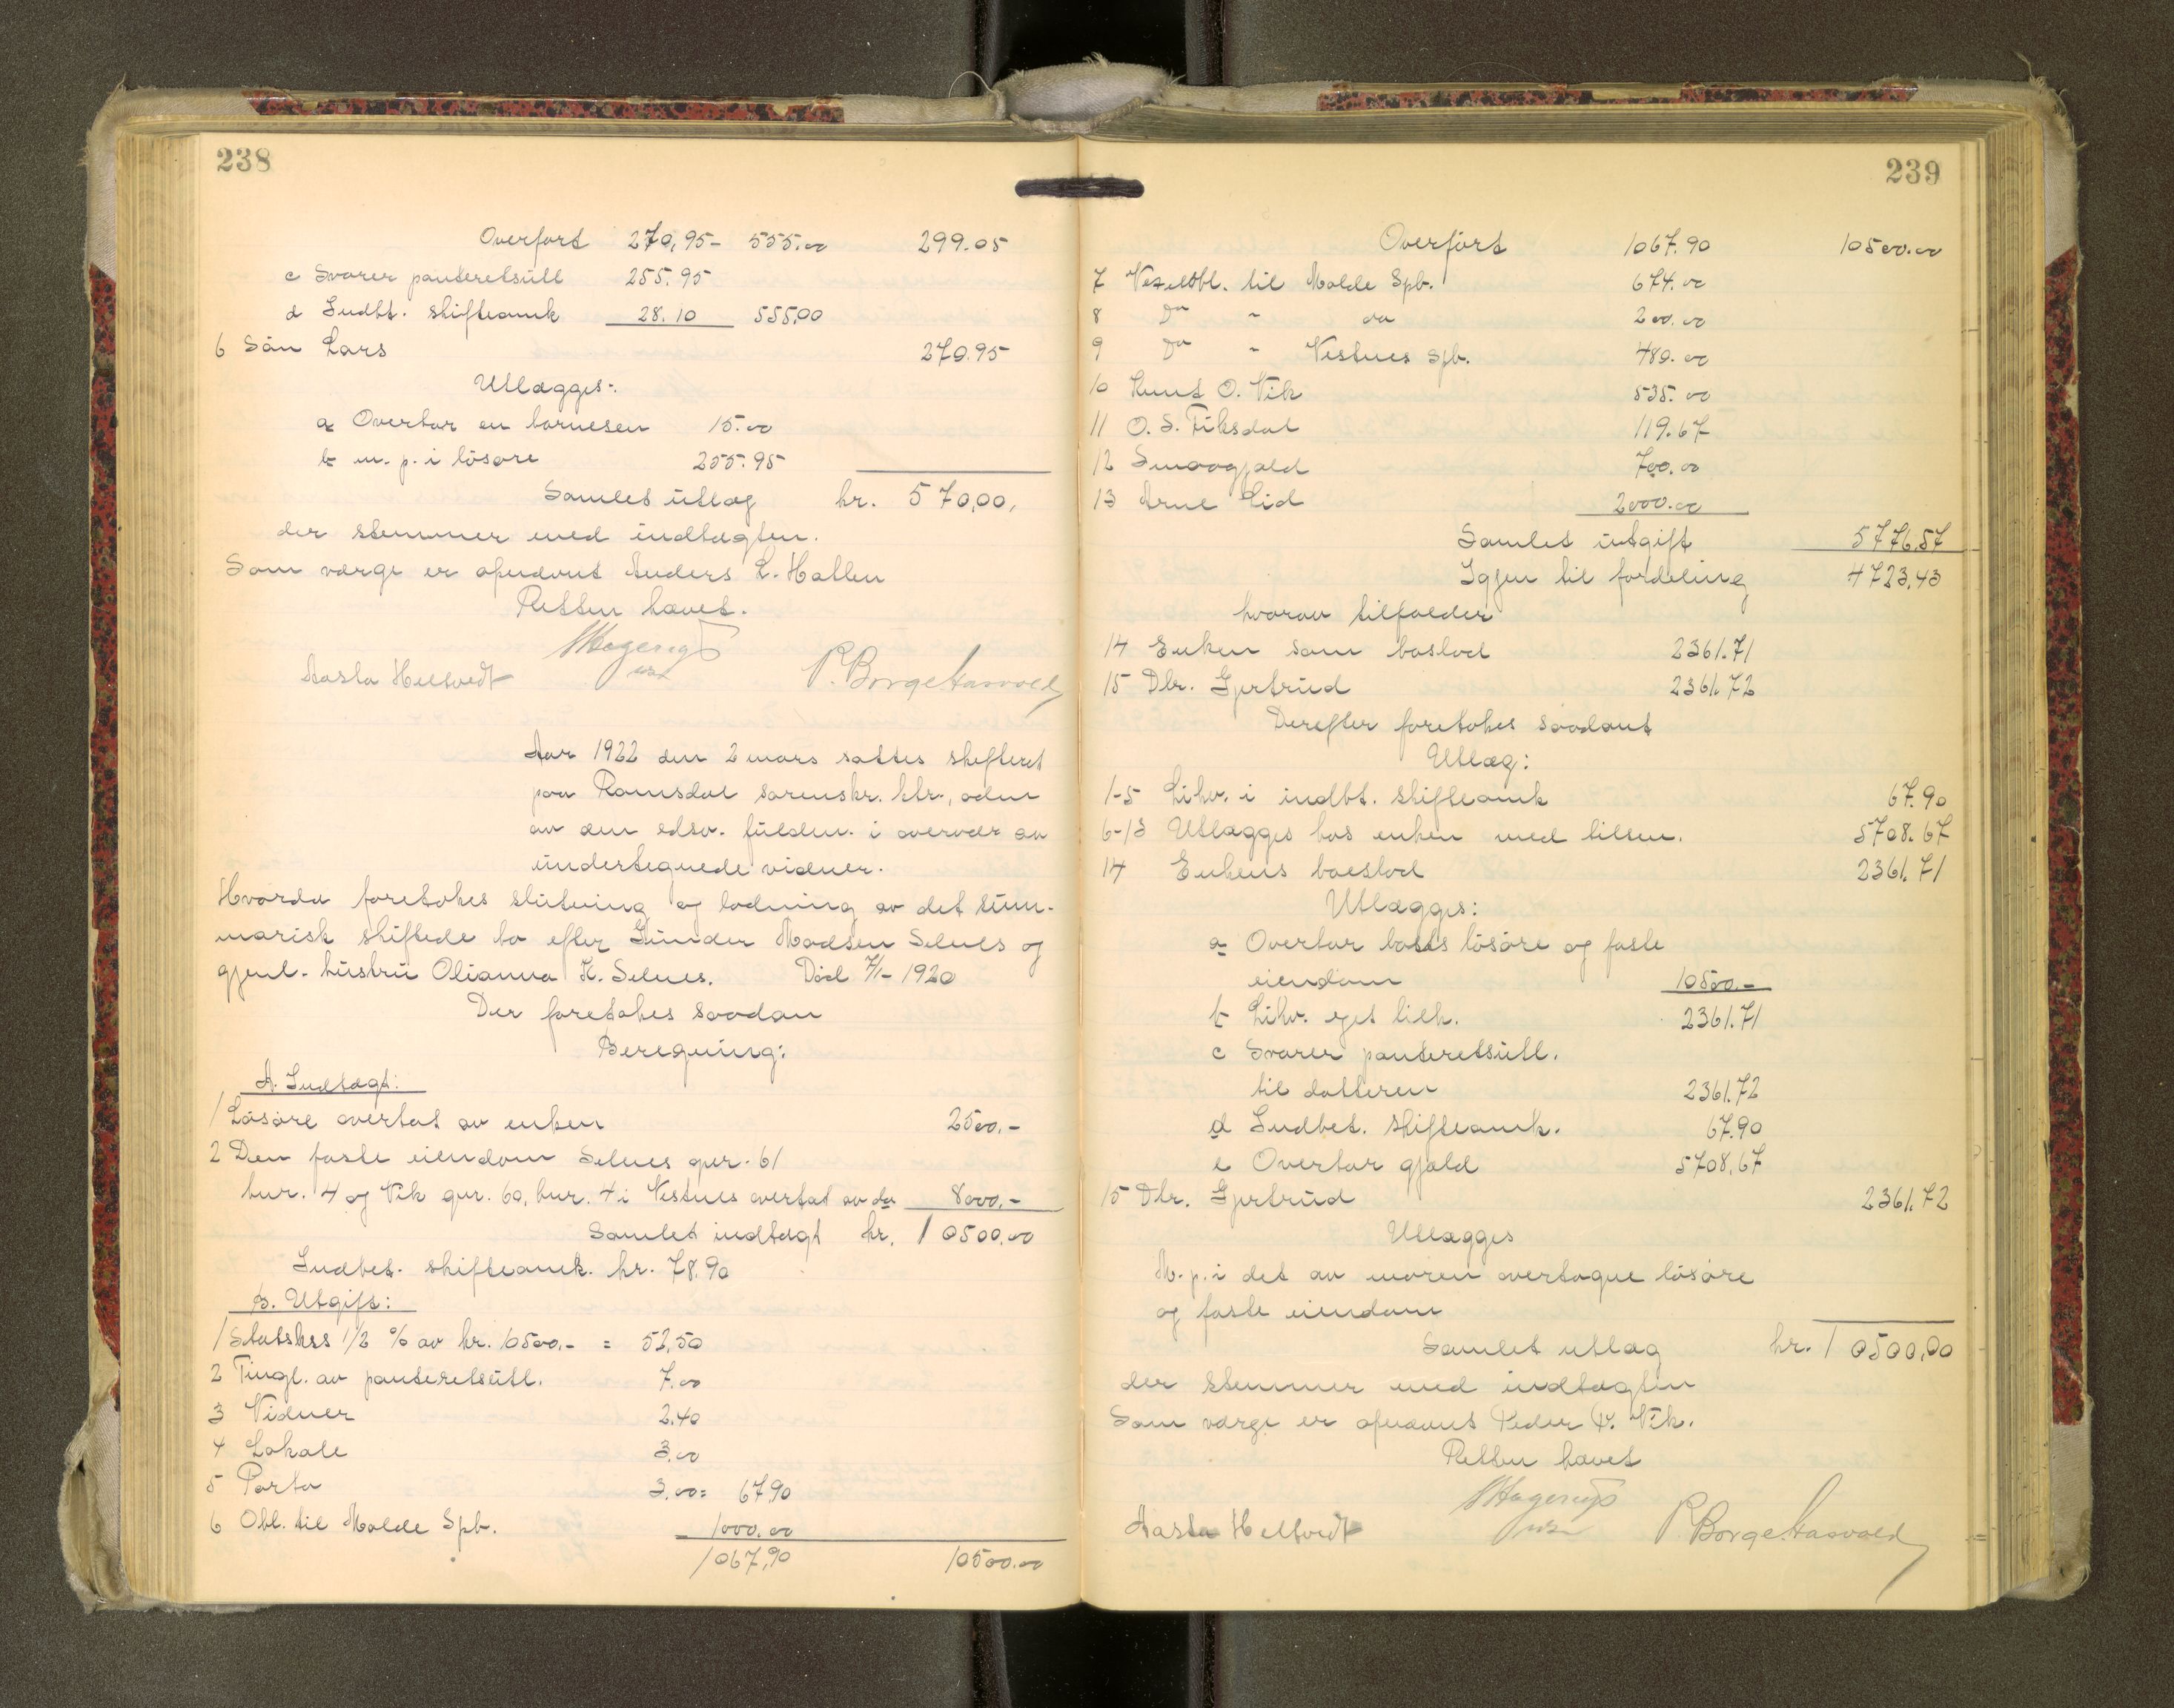 238
Overført 270,95 - 555.00 299.05
c Svarer panteretsutl 255.95
d Indbt. skifteomk 28.10 555,00
6 Søn Lars 270.95
Utlægges:
a Overtar en børnesen 15.00
b m. p. i løsøre 255.95
Samlet utlæg kr. 570,00,
der stemmer med indtægten.
Som værge er opnævnt Anders L. Hallen
Retten hævet.
Hagerup
Aasta Heltvedt P. Borgehasvold
Aar 1922 den 2 mars sattes skifteret
paa Romsdal sorenskr. ktr., adm
av den edsv. fuldm. i overvær av
undertegnede vidner.
Hvorda foretokes slutning og lodning av det sum-
marisk skiftede bo efter Gunder Madsen Selnes og
gjenl. hustru Olianna K. Selnes. Død 7/1- 1920
Der foretokes saadan
Beregning:
A. Indtægt:
1 Løsøre overtat av enken 2500,-
2 Den faste eiendom Selnes gnr. 61
bnr. 4 og Vik gnr. 60, bnr. 4 i Vestnes overtat av do 8000,-
Samlet indtægt kr. 10500.00
Indbet. skifteomk. kr. 78.90
B. Utgift:
1 Statskss 1/2 % av kr. 10500.- = 52,50
2 Tingl. av panteretsutl. 7.00
3 Vidner 2.40
4 Lokale 3.00
5 Porto 3.00 = 67.90
6 Obl. til Molde Spb. 1000.00
1067,90 10500.00
239
Overført 1067.90 10500.00
7 Vexelobl. til Molde Spb. 674.00
8 Do - do 200.00
9 Do - Vestnes Spb. 480.00
10 Knut O. Vik 535.00
11 O. S. Fiksdal 119.67
12 Smaagjæld 700.00
13 Arne Lid 2000.00
Samlet utgift 5776,57
Igjen til fordeling 4723,43
hvorav tilfalder
14 Enken som boslod 2361.71
15 Dtr. Gjertrud 2361.72
Derefter foretokes saadant
Utlæg:
1-5 Likv. i indbt. skifteomk 67.90
6-13 Utlægges hos enken med tilsm. 5708.67
14 Enkens boeslod 2361.71
Utlægges:
a Overtar boets løsøre og faste
eiendom 10500.-
b Likv. eget tilk. 2361.71
c Svarer panteretsutl.
til datteren 2361.72
d Indbet. skifteomk. 67.90
e Overtar gjæld 5708,67
15 Dtr. Gjertrud 2361.72
Utlægges
M. p. i det av moren overtagne løsøre
og faste eiendom
Samlet utlæg kr. 10500,00
der stemmer med indtægten
Som værge er opnævnt Peder P. Vik.
Retten hævet
Hagerup
Aasta Heltvedt P. Borgehasvold